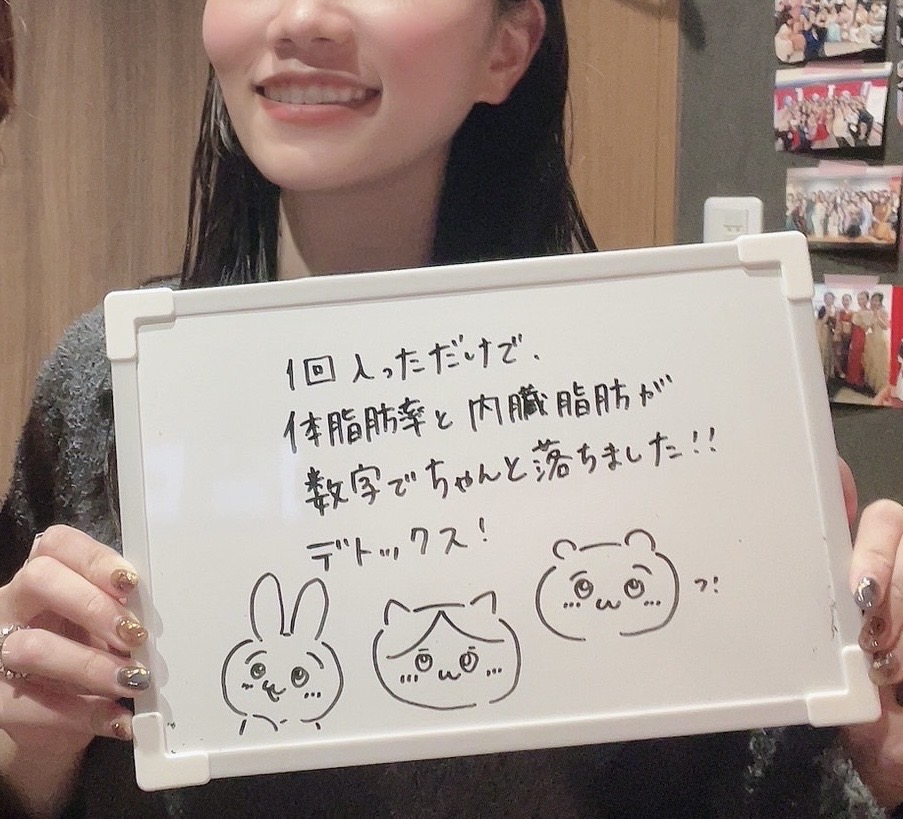 1回入っただけで、
体脂肪率と内臓脂肪が
数字でちゃんと落ちました!!
デトックス!
っ!